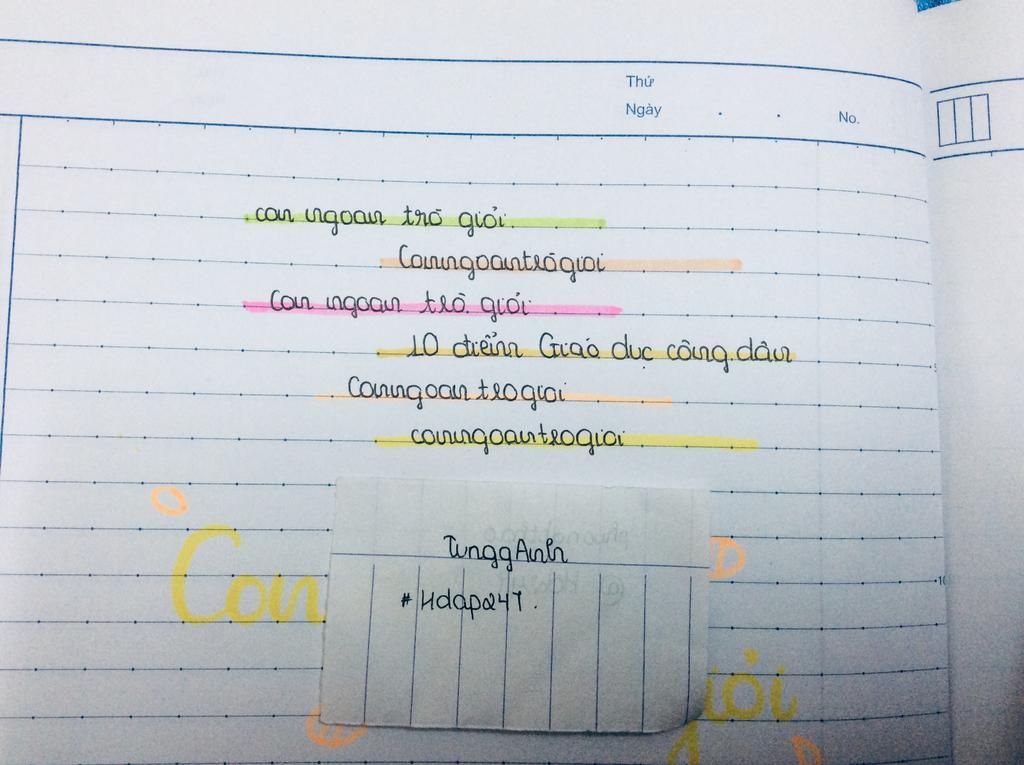 Thứ
Ngày . . No.
con ngoan trò giỏi.
Conngoantrògioi
Con ngoan trò giỏi
10 điểm Giáo dục công dân
Conngoan trogioi
conngoantrogioi
Con
iỏi
TunggAnh
#Hdap247.